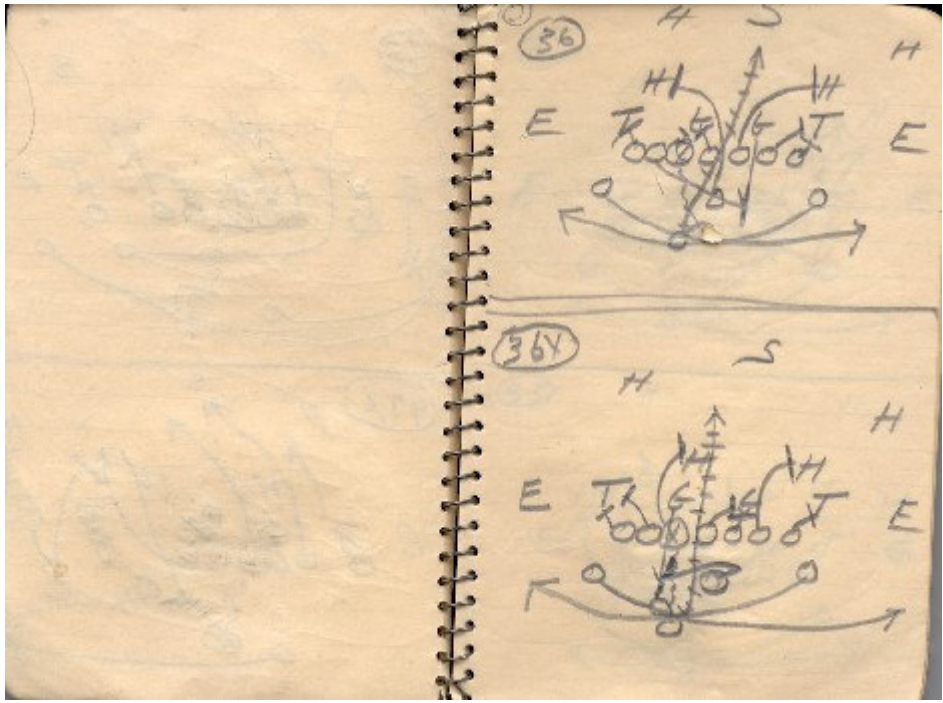 36
H S
H
H H
E T G G T E
36X
S
H
H
H H
E T G G T E